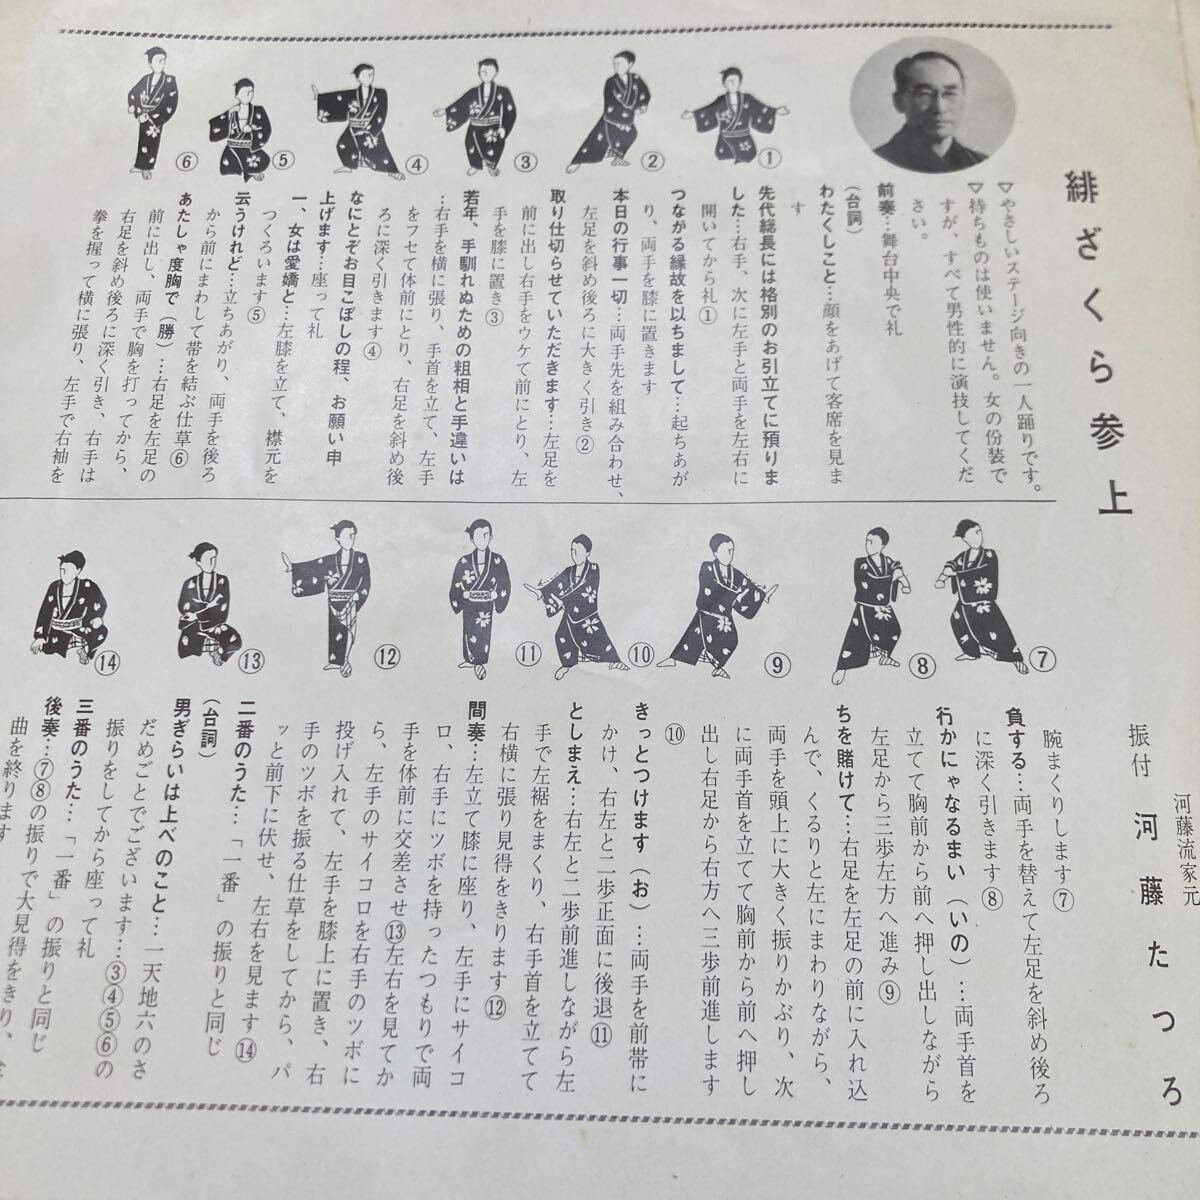 緋ざくら参上
河藤流家元
振付 河藤たつろ
▽やさしいステージ向きの一人踊りです。
▽持ちものは使いません。女の份装で
すが、すべて男性的に演技してくだ
さい。
前奏…舞台中央で礼
(台詞)
わたくしこと…顔をあげて客席を見ま
す
先代総長には格別のお引立てに預りま
した…右手、次に左手と両手を左右に
開いてから礼①
つながる縁故を以ちまして…起ちあが
り、両手を膝に置きます
本日の行事一切…両手先を組み合わせ、
左足を斜め後ろに大きく引き②
取り仕切らせていただきます…左足を
前に出し右手をウケて前にとり、左
手を膝に置き③
若年、手馴れぬための粗相と手違いは
…右手を横に張り、手首を立て、左手
をフセて体前にとり、右足を斜め後
ろに深く引きます④
なにとぞお目こぼしの程、お願い申
上げます…座って礼
一、女は愛嬌と…左膝を立て、襟元を
つくろいます⑤
云うけれど…立ちあがり、両手を後ろ
から前にまわして帯を結ぶ仕草⑥
あたしゃ度胸で(勝)…右足を左足の
前に出し、両手で胸を打ってから、
右足を斜め後ろに深く引き、右手は
拳を握って横に張り、左手で右袖を
①
②
③
④
⑤
⑥
⑦
⑧
⑨
⑩
⑪
⑫
⑬
⑭
腕まくりします⑦
負する…両手を替えて左足を斜め後ろ
に深く引きます⑧
行かにゃなるまい(いの)…両手首を
立てて胸前から前へ押し出しながら
左足から三歩左方へ進み⑨
ちを賭けて…右足を左足の前に入れ込
んで、くるりと左にまわりながら、
両手を頭上に大きく振りかぶり、次
に両手首を立てて胸前から前へ押し
出し右足から右方へ三歩前進します
⑩
きっとつけます(お)…両手を前帯に
かけ、右左と二歩正面に後退⑪
としまえ…右左と二歩前進しながら左
手で左裾をまくり、右手首を立てて
右横に張り見得をきります⑫
間奏…左立て膝に座り、左手にサイコ
ロ、右手にツボを持ったつもりで両
手を体前に交差させ⑬左右を見てか
ら、左手のサイコロを右手のツボに
投げ入れて、左手を膝上に置き、右
手のツボを振る仕草をしてから、パ
ッと前下に伏せ、左右を見ます⑭
二番のうた…「一番」の振りと同じ
(台詞)
男ぎらいは上べのこと…一天地六のさ
だめごとでございます…③④⑤⑥の
振りをしてから座って礼
三番のうた…「一番」の振りと同じ
後奏…⑦⑧の振りで大見得をきり、全
曲を終ります